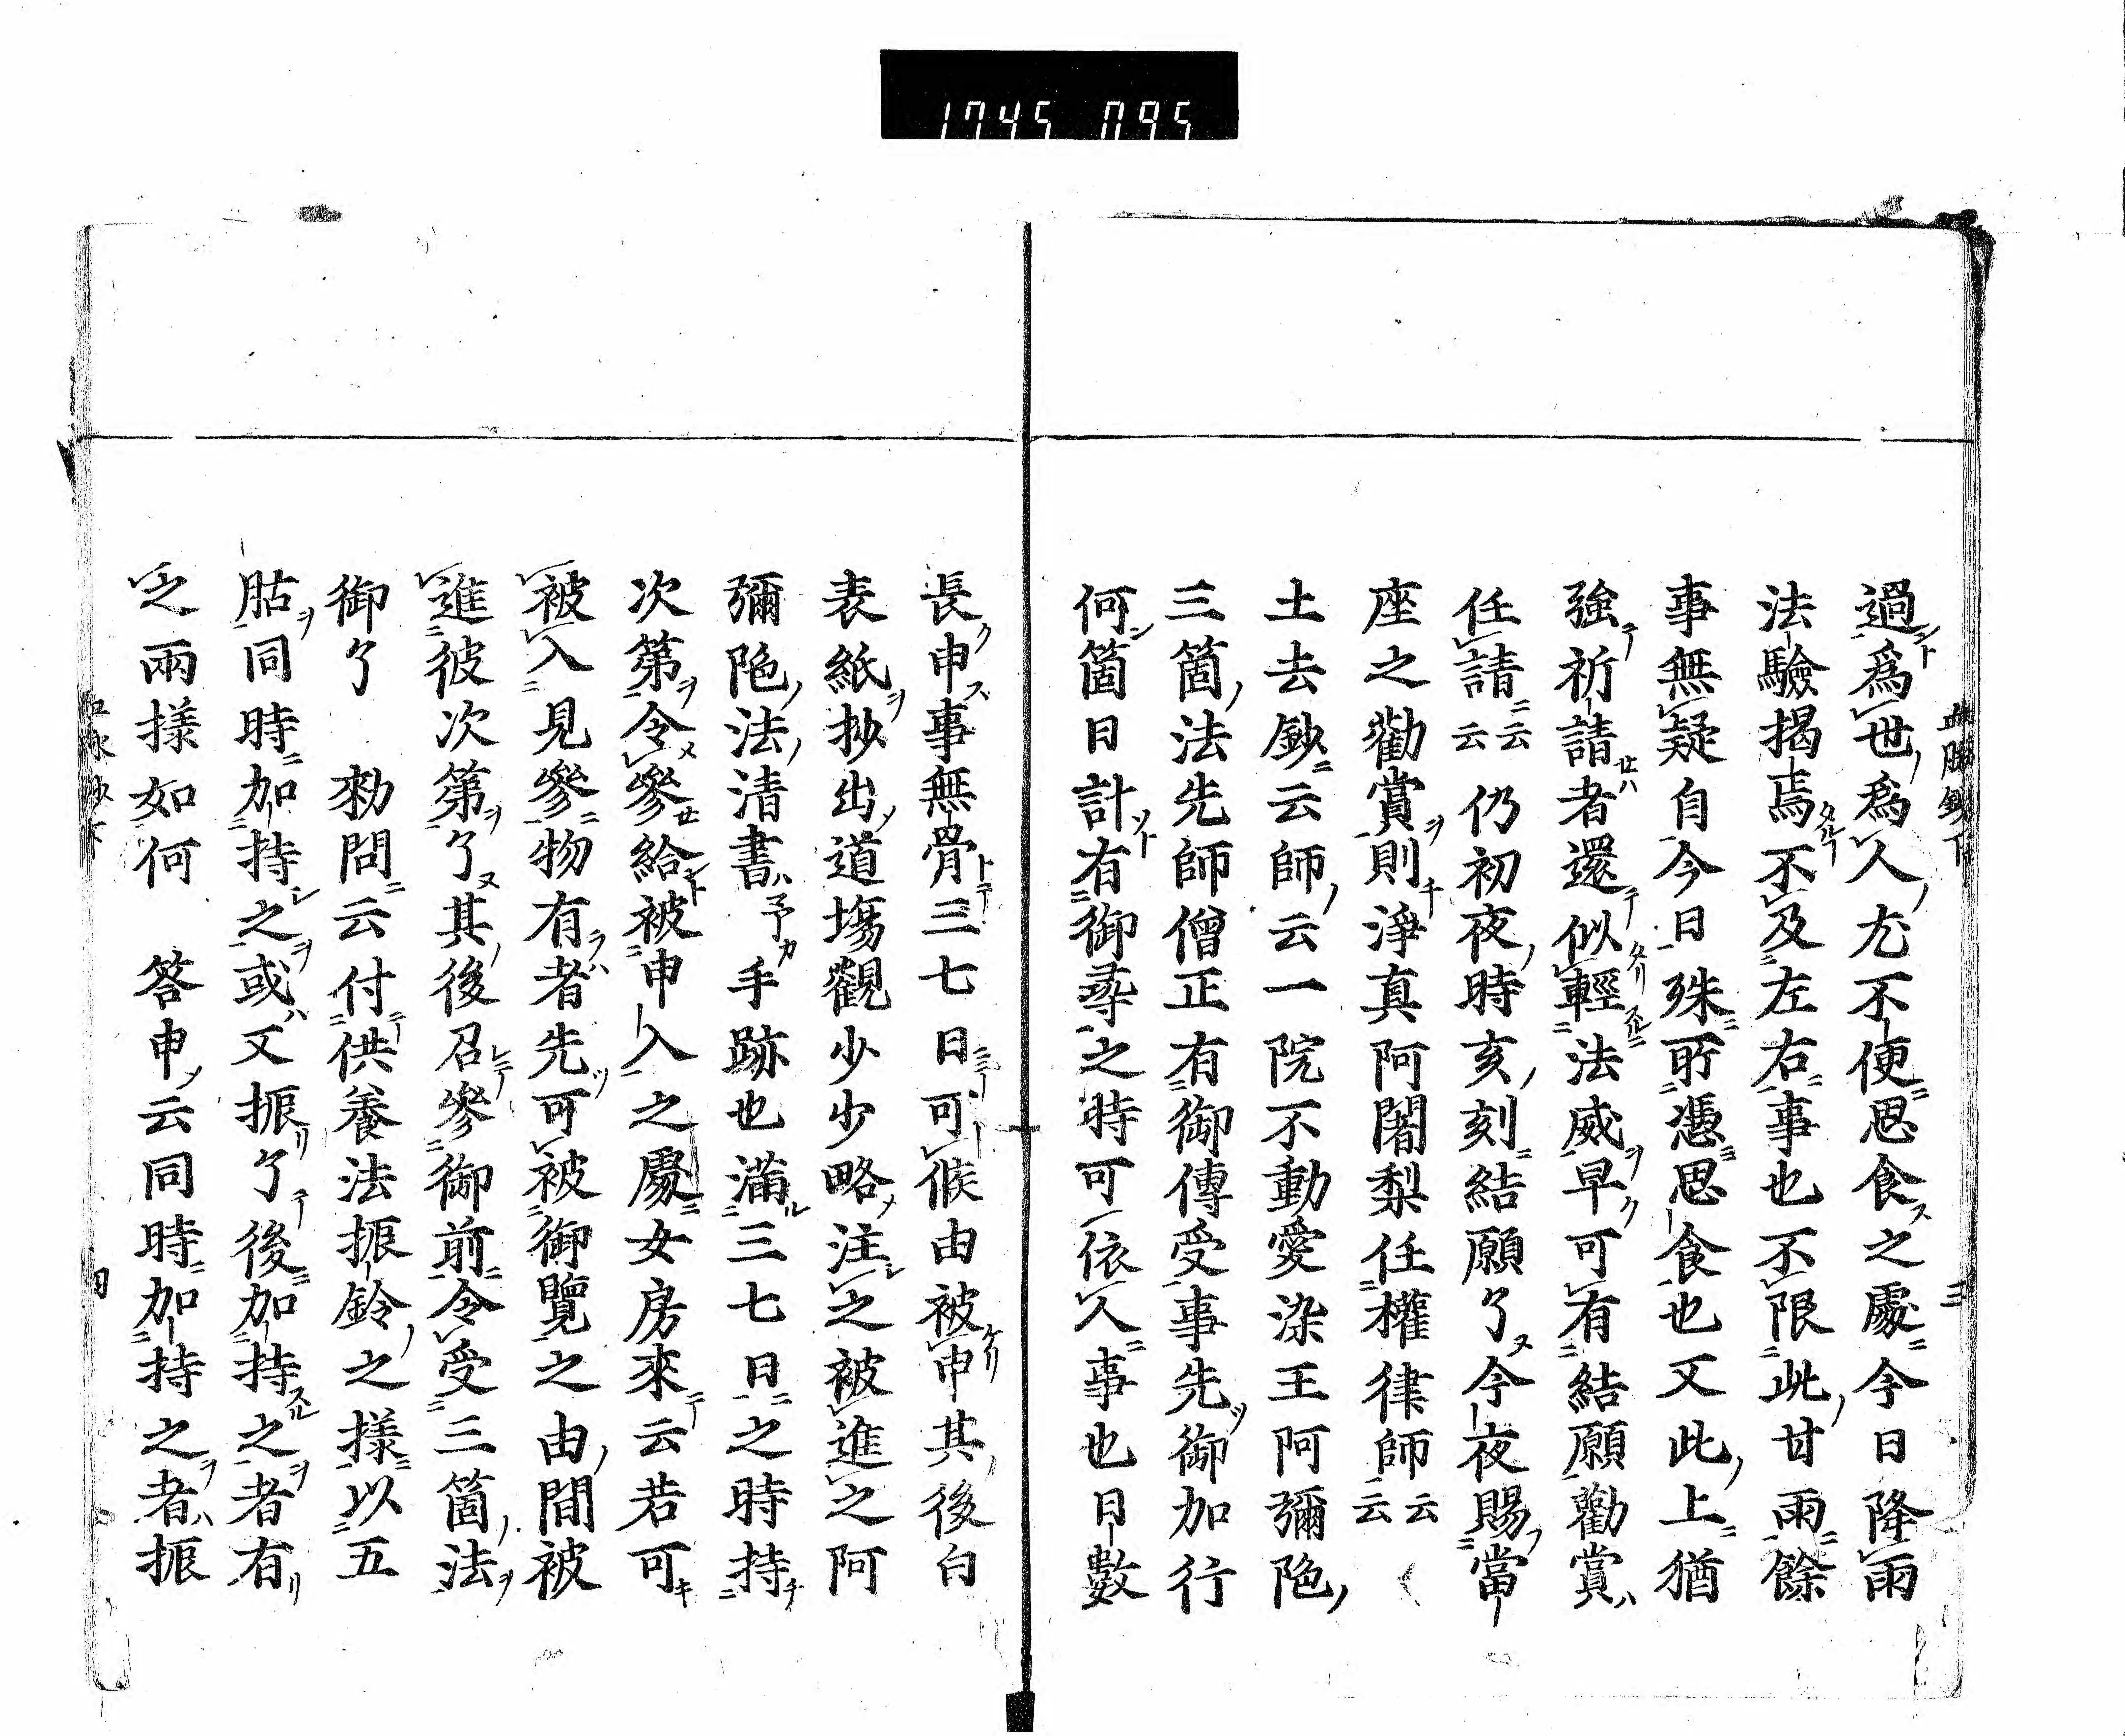 1745 095
血脉鈔下 三
過爲世爲人尤不便思食之處今日降雨
法驗揭焉不及左右事也不限此甘雨餘
事無疑自今日殊所憑思食也又此上猶
強祈請者還似輕法威早可有結願勸賞
任請云云仍初夜時亥刻結願了今夜賜當
座之勸賞則淨真阿闍梨任權律師云云
土去鈔云師云一院不動愛染王阿彌陁
三箇法先師僧正有御傳受事先御加行
何箇日計有御尋之時可依人事也日數
長申事無骨三七日可候由被申其後白
表紙抄出道場觀少少略注之被進之阿
彌陁法清書予手跡也滿三七日之時持
次第令參給被申入之處女房來云若可
被入見參物有者先可被御覽之由間被
進彼次第了其後召參御前令受三箇法
御了 勑問云付供養法振鈴之樣以五
股同時加持之或又振了後加持之者有
之兩樣如何 答申云同時加持之者振